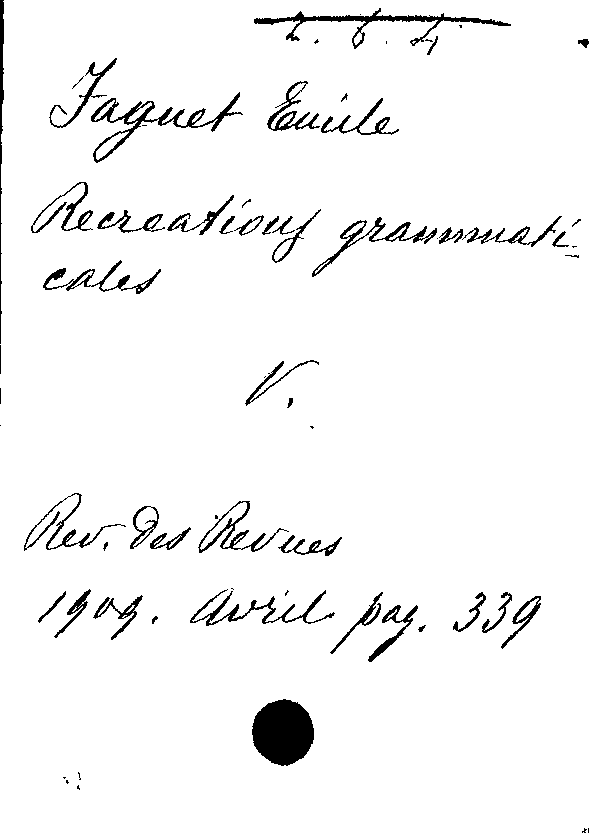 2. 6. 4
Faguet Emile
Recreations grammati-
cales
V.
Rev. des Revues
1909. Avril pag. 339